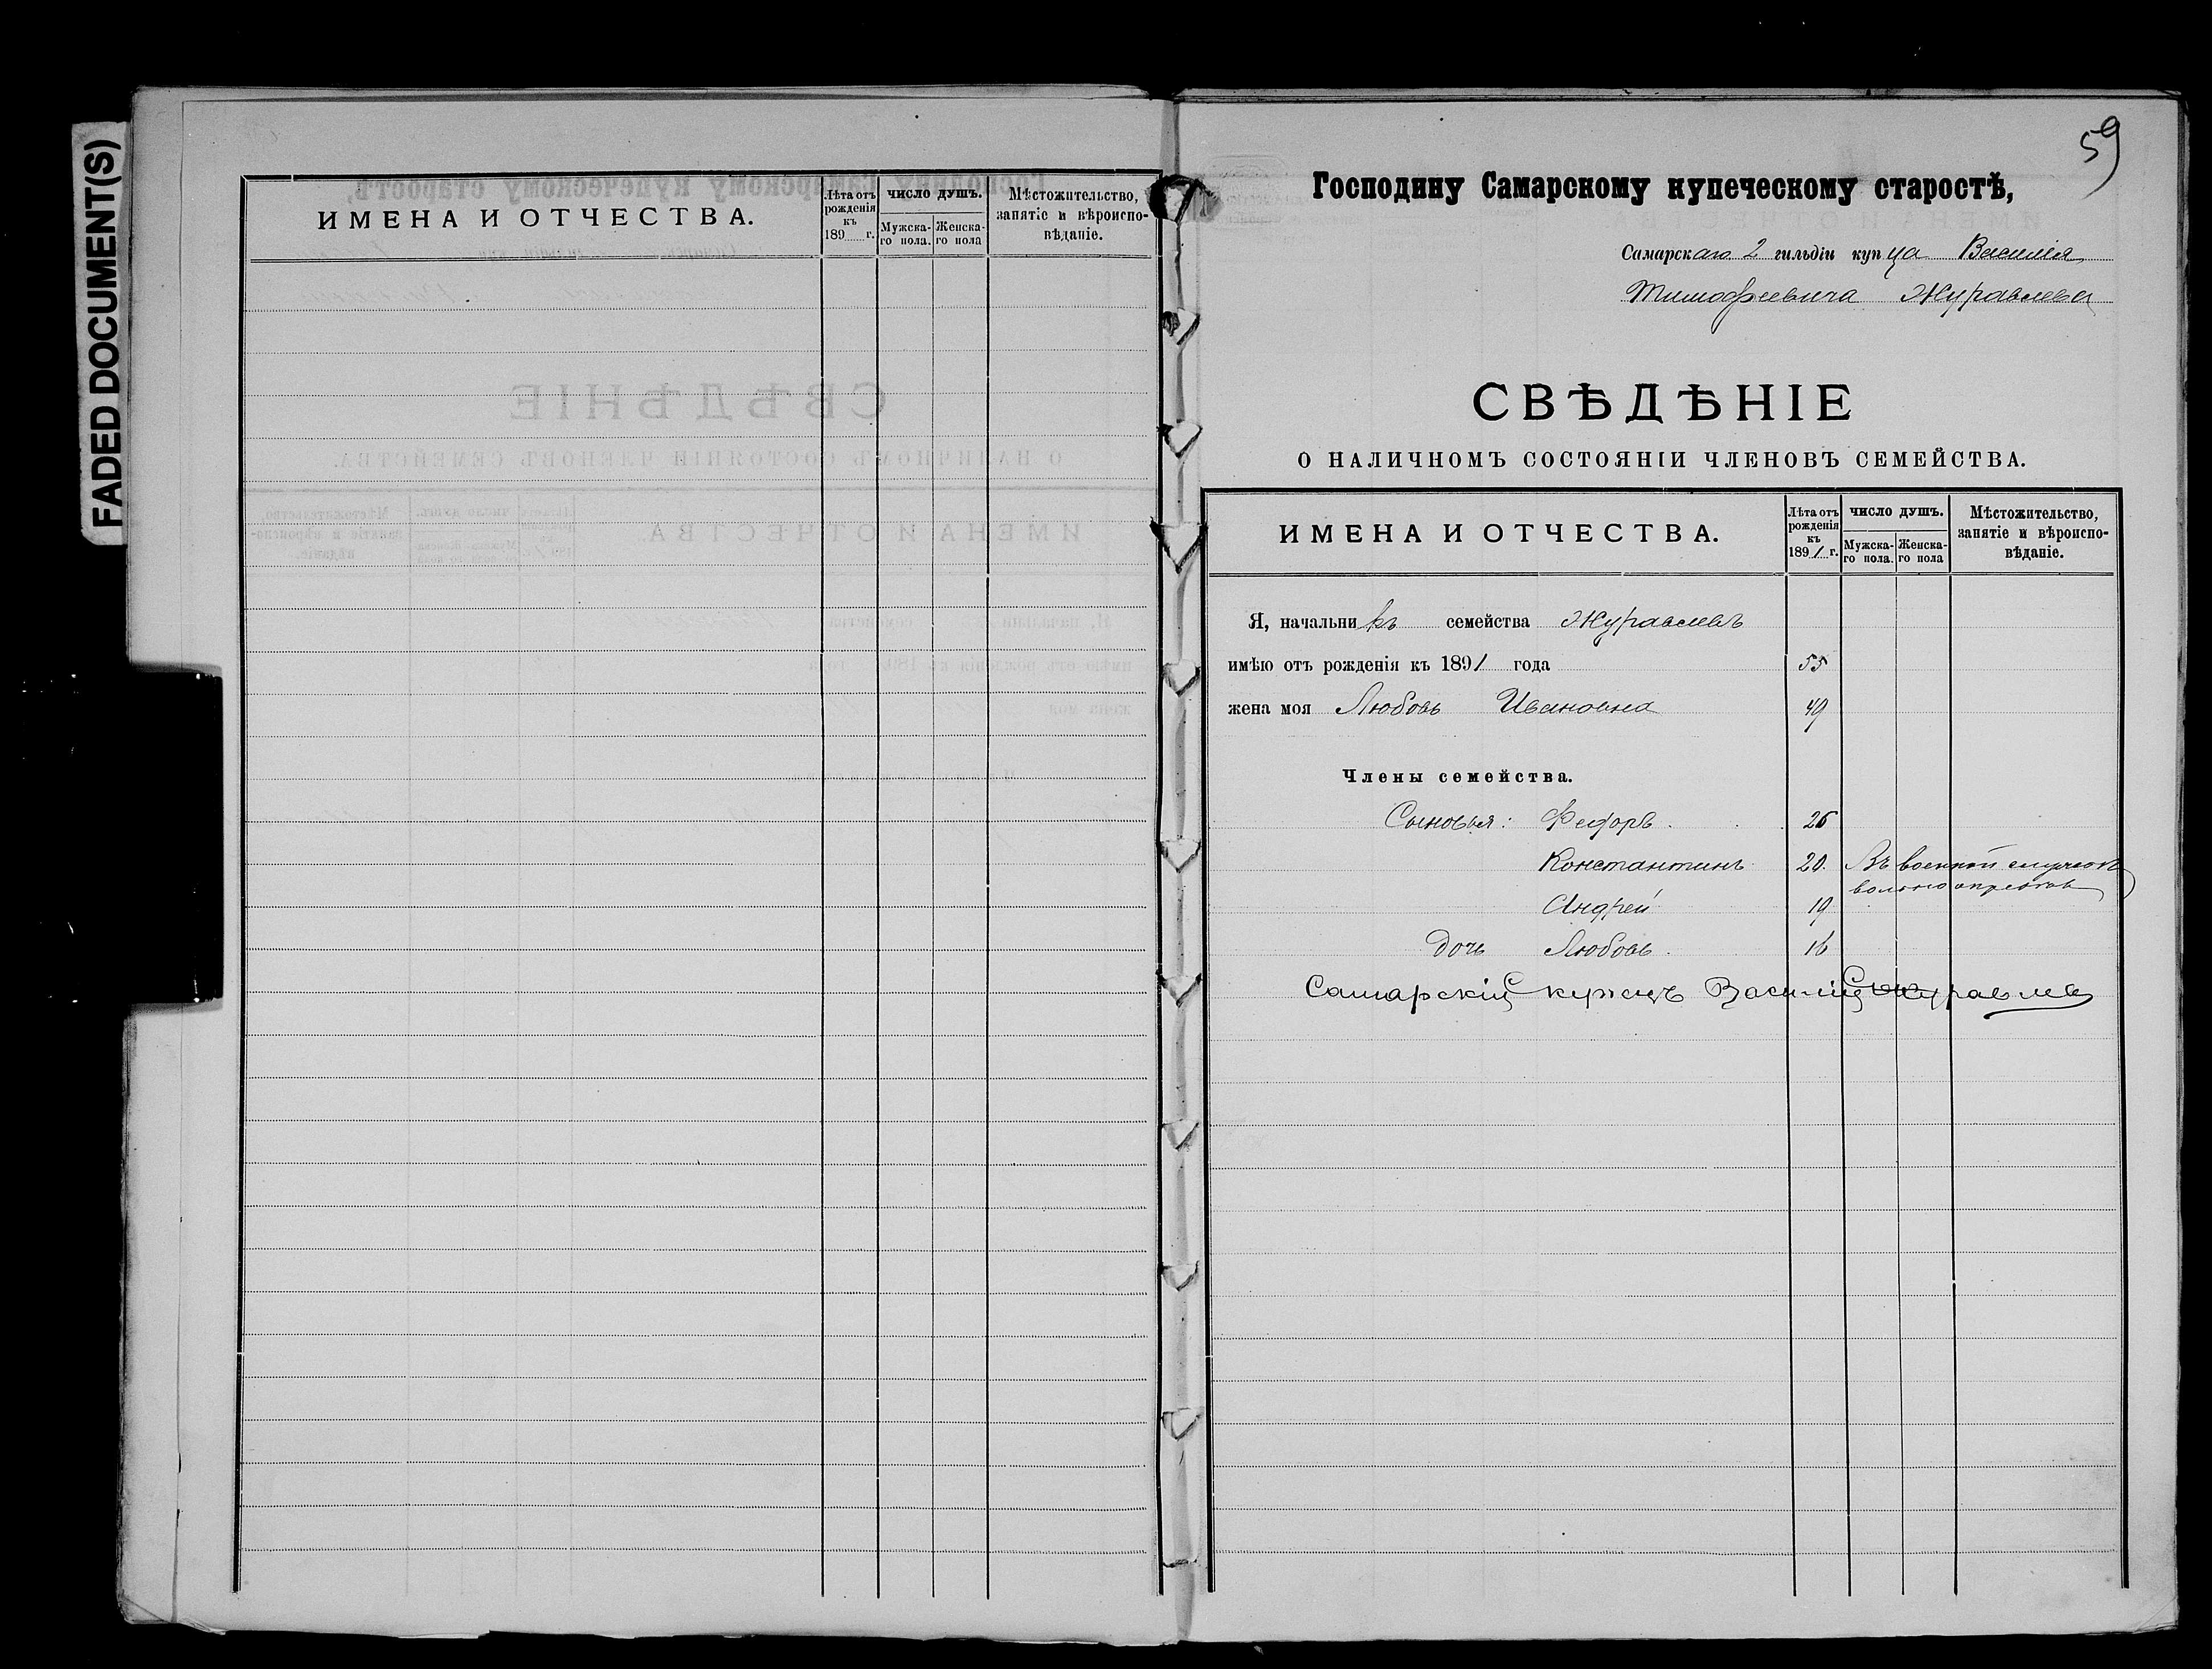 FADED DOCUMENT(S)
ИМЕНА И ОТЧЕСТВА.
Лѣта отъ рожденія къ 189 г.
ЧИСЛО ДУШЪ.
Мужска-го пола.
Женска-го пола
Мѣстожительство, занятіе и вѣроиспо-вѣданіе.
59
Господину Самарскому купеческому старостѣ,
Самарскаго 2 гильдіи купца Василія
Тимофеевича Журавлева
СВѢДѢНІЕ
О НАЛИЧНОМЪ СОСТОЯНІИ ЧЛЕНОВЪ СЕМЕЙСТВА.
ИМЕНА И ОТЧЕСТВА.
Лѣта отъ рожденія къ 1891 г.
ЧИСЛО ДУШЪ.
Мужска-го пола.
Женска-го пола
Мѣстожительство, занятіе и вѣроиспо-вѣданіе.
Я, начальникъ семейства Журавлевъ
имѣю отъ рожденія къ 1891 года 55
жена моя Любовь Ивановна 49
Члены семейства.
Сыновья: Федоръ. 26
Константинъ 20. Въ военной
Андрей 19
Дочь Любовь. 16
Самарскій купецъ Василій Журавлев